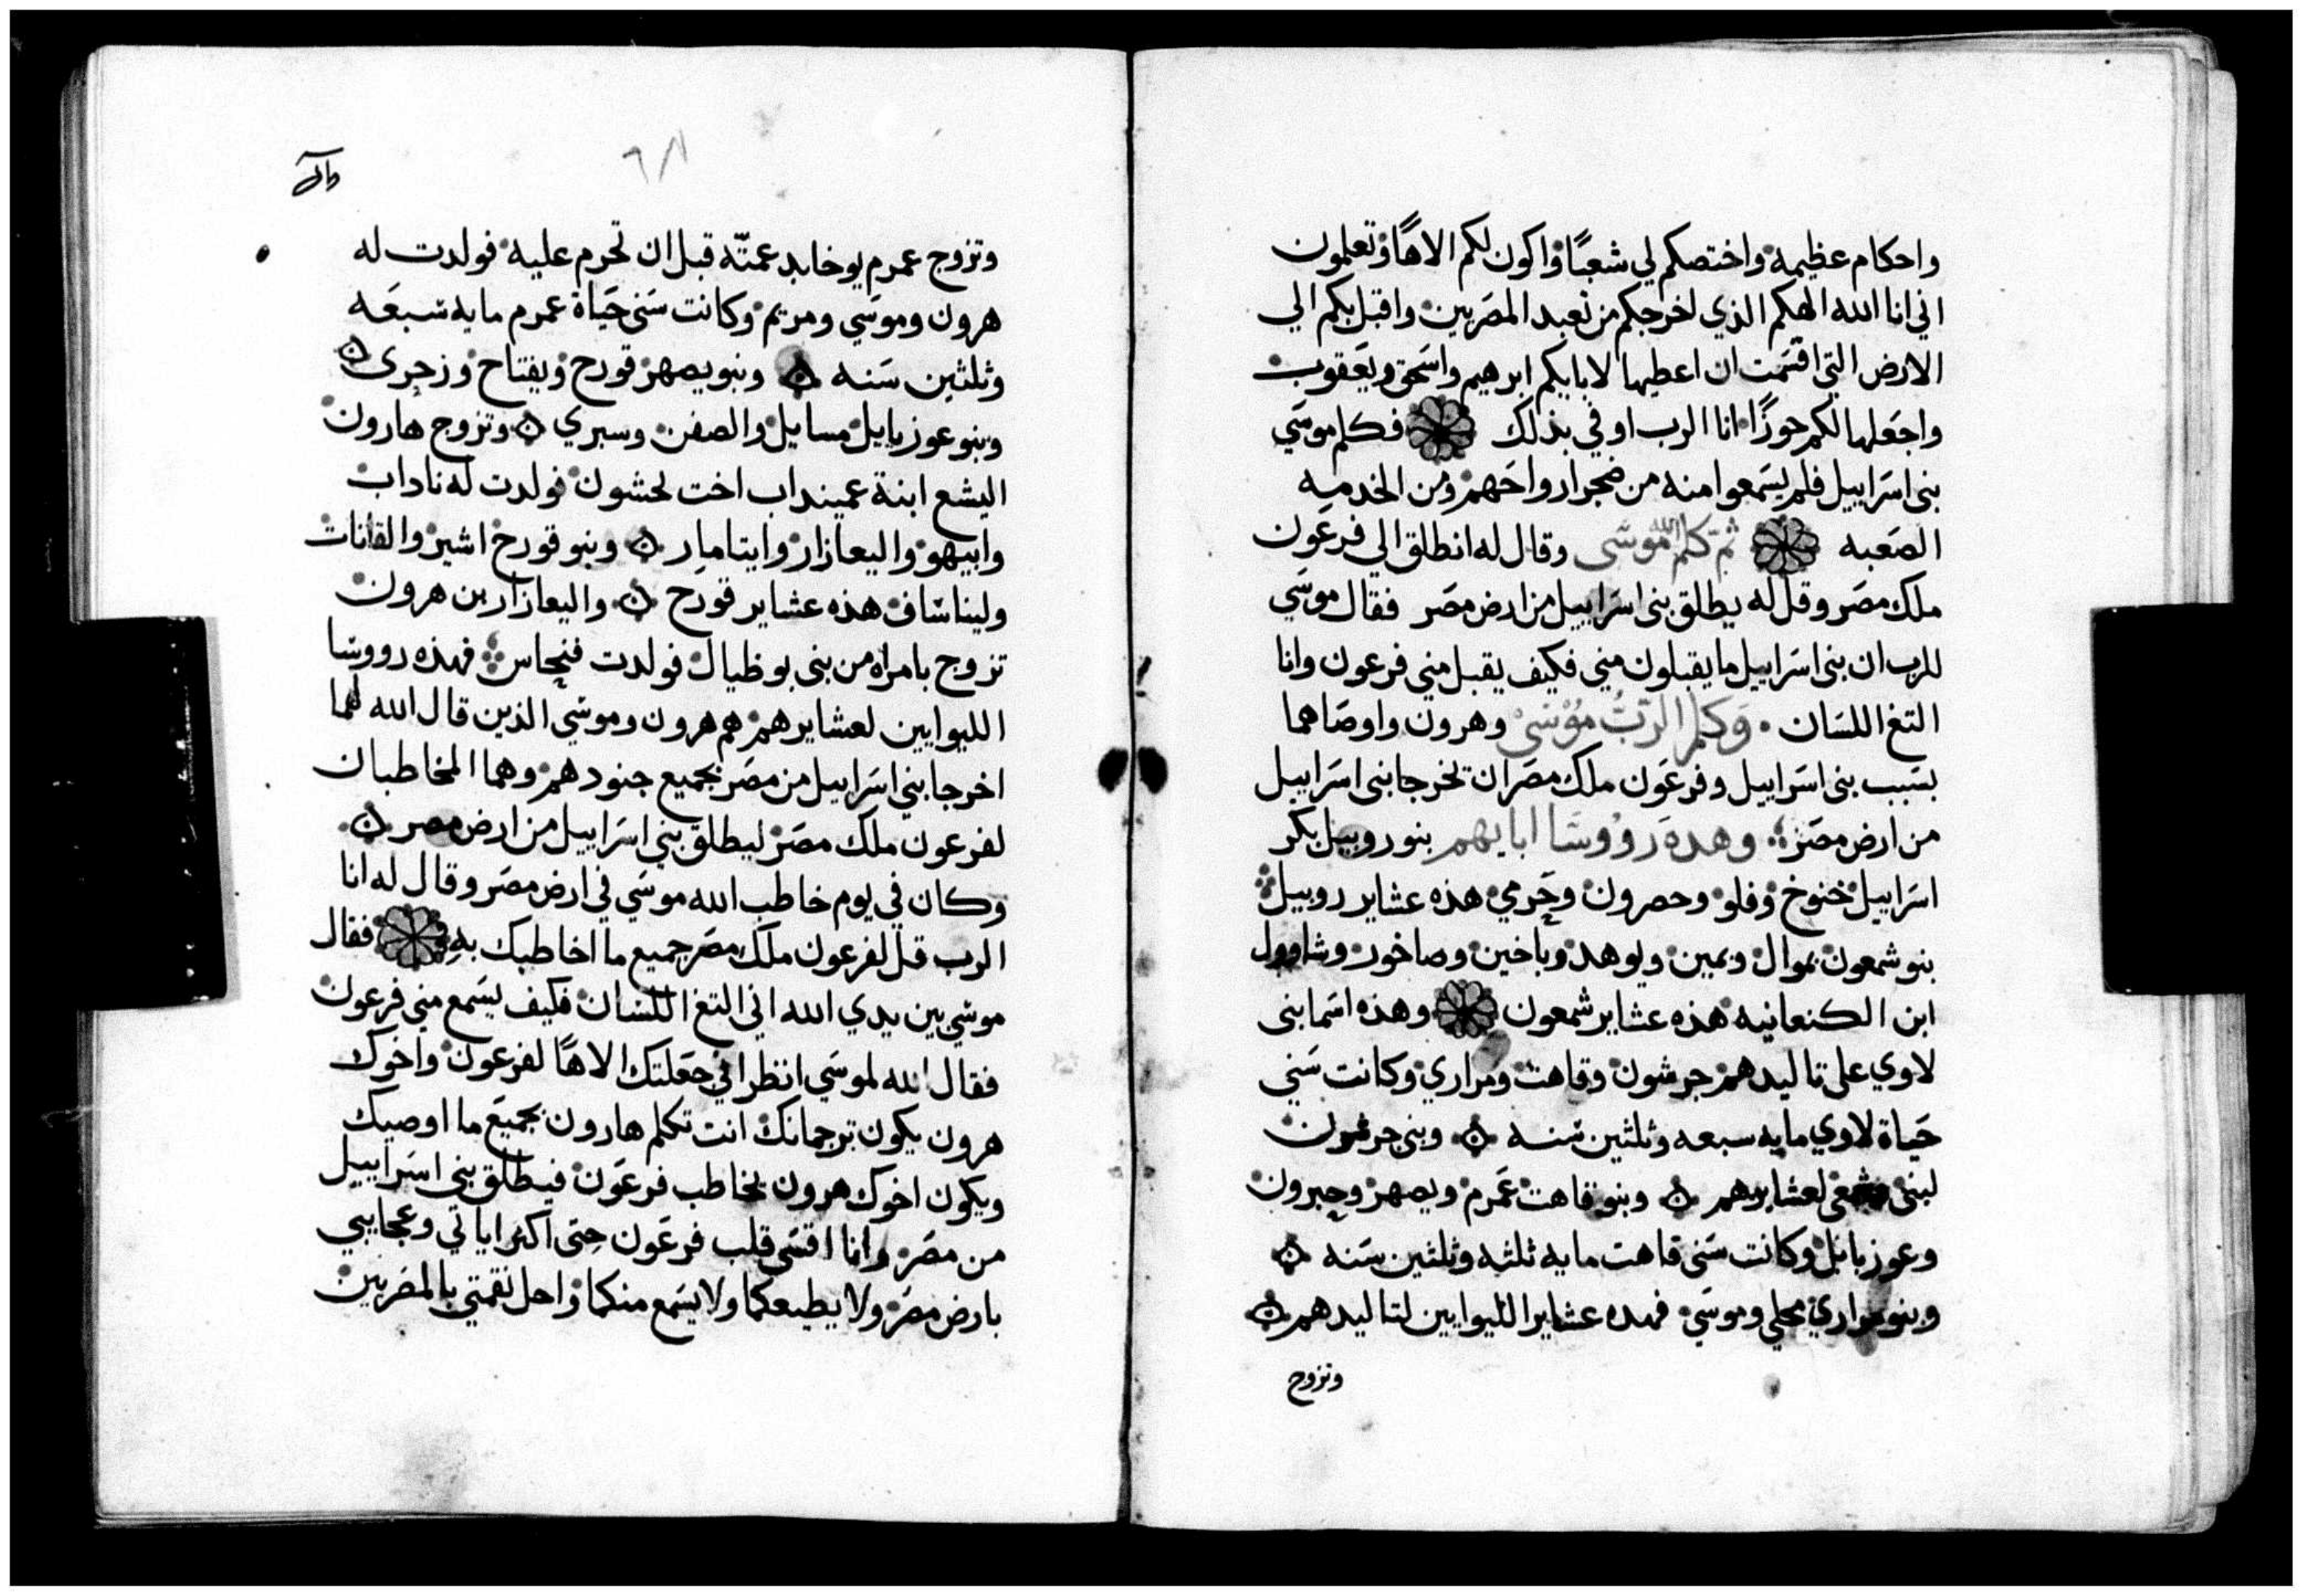 واحكام عظيمة واختصكم لي شعبًا واكون لكم الاهًا وتعلمون
اني انا الله الهكم الذي اخرجكم من تعبد المصريين واقبل بكم الي
الارض التي اقسمت ان اعطيها لابايكم ابرهيم واسحق ويعقوب
واجعلها لكم حوزًا انا الرب اوفي بذلك فكلم موسي
بني اسراييل فلم يسمعوا منه من ضجر ارواحهم ومن الخدمه
الصعبه ثم كلم الله موسى وقال له انطلق الي فرعون
ملك مصر وقل له يطلق بني اسراييل من ارض مصر فقال موسي
للرب ان بني اسراييل ما يقبلون مني فكيف يقبل مني فرعون وانا
التغ اللسان وكلم الرب موسى وهرون واوصاهما
بسبب بني اسراييل وفرعون ملك مصر ان تخرجا بني اسراييل
من ارض مصر وهده رووسا ابايهم بنو روبيل بكر
اسراييل خنوخ وفلو وحصرون وحرمي هذه عشاير روبيل
بنو شمعون نموال ويمين ويوهد وياخين وصاخور وشاوول
ابن الكنعانيه هذه عشاير شمعون وهذه اسما بني
لاوي على تاليدهم جرشون وقاهت ومراري وكانت سني
حياة لاوي مايه سبعه وثلثين سنه وبني جرشون
لبني لعشايرهم وبنو قاهت عمرم ويصهر وحبرون
وعوزيايل وكانت سني قاهت مايه ثلثه وثلثين سنه
وبنو مراري محلي وموسي فهده عشاير الليوايين لتاليدهم
وتزوج
وتزوج عمرم يوخابد عمته قبل ان تحرم عليه فولدت له
هرون وموسي ومريم وكانت سني حياة عمرم مايه سبعه
وثلثين سنه وبنو يصهر قورح ويفتاح وزجرى
وبنو عوزيايل مسايل والصفن وسبري وتزوج هارون
اليشع ابنة عميناداب اخت لحشون فولدت له ناداب
وابيهو واليعازار وايتامار وبنو قورخ اشير والقانات
وليناساف هذه عشاير قورح واليعازار بن هرون
تزوج بامراه من بني بوظيال فولدت فنحاس فهذه رووسا
الليوايين لعشايرهم هم هرون وموسي الذين قال الله لهما
اخرجا بني اسراييل من مصر بجميع جنودهم وهما المخاطبان
لفرعون ملك مصر ليطلق بني اسراييل من ارض مصر
وكان في يوم خاطب الله موسي في ارض مصر وقال له انا
الرب قل لفرعون ملك مصر جميع ما اخاطبك به فقال
موسي بين يدي الله اني التغ اللسان فكيف يسمع مني فرعون
فقال الله لموسي انظر اني جعلتك الاهًا لفرعون واخوك
هرون يكون ترجمانك انت تكلم هارون بجميع ما اوصيك
ويكون اخوك هرون يخاطب فرعون فيطلق بني اسراييل
من مصر وانا اقسي قلب فرعون حتى اكثر اياتي وعجايبي
بارض مصر ولا يطيعكما ولا يسمع منكما واحل نقمتي بالمصريين